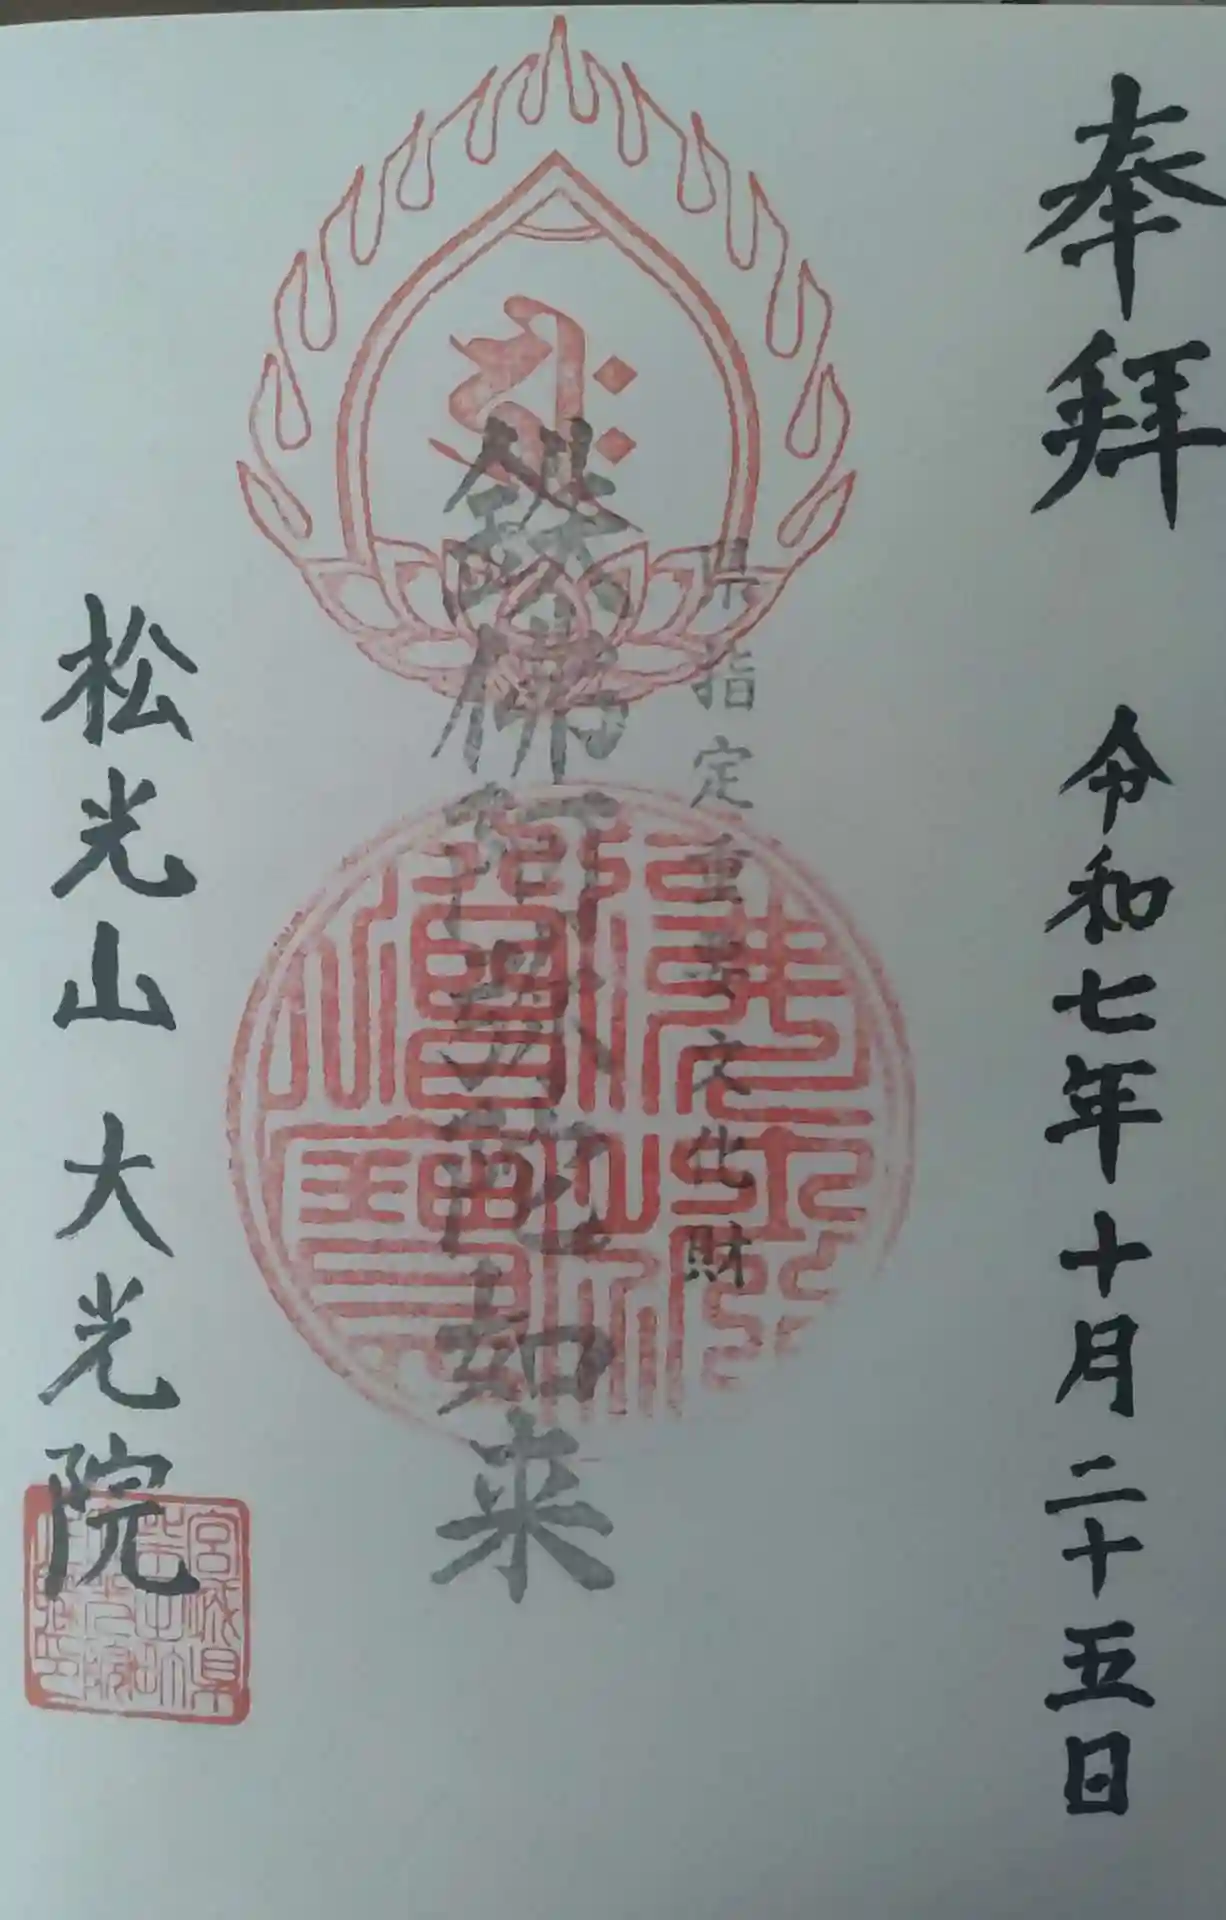 奉拜
令和七年十月二十五日
県指定重要文化財
鉄佛阿弥陀如来
松光山 大光院